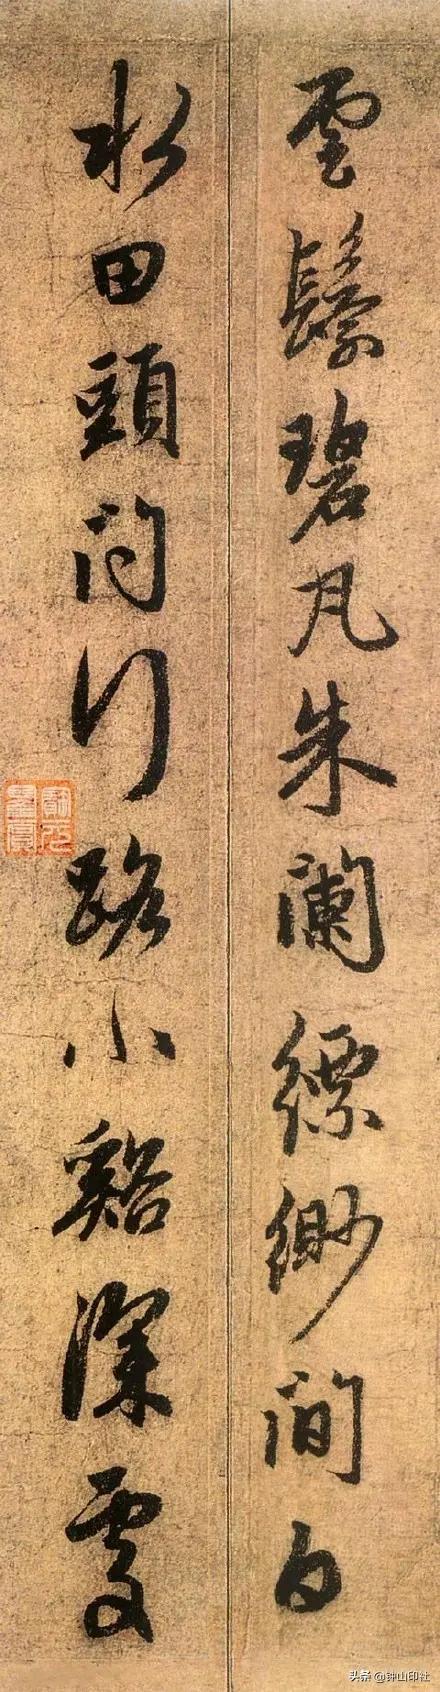 雲鬟碧瓦朱闌縹緲間白
水田頭問行路小谿深處
头条 @钟山印社